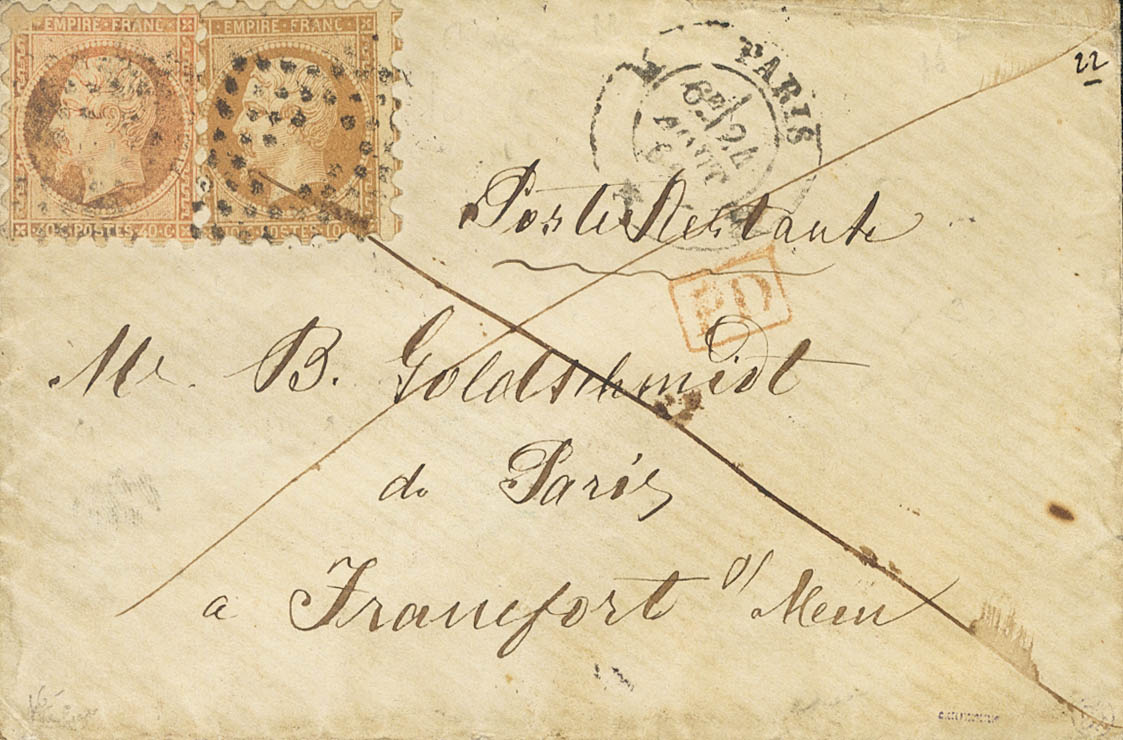 EMPIRE FRANC EMPIRE FRANC
40 C POSTES 40 C POSTES 10
PARIS
6E 24
AOUT
22
Poste Restante
PD
Mr. B. Goldtschmidt
de Paris
a Francfort s/ Mein